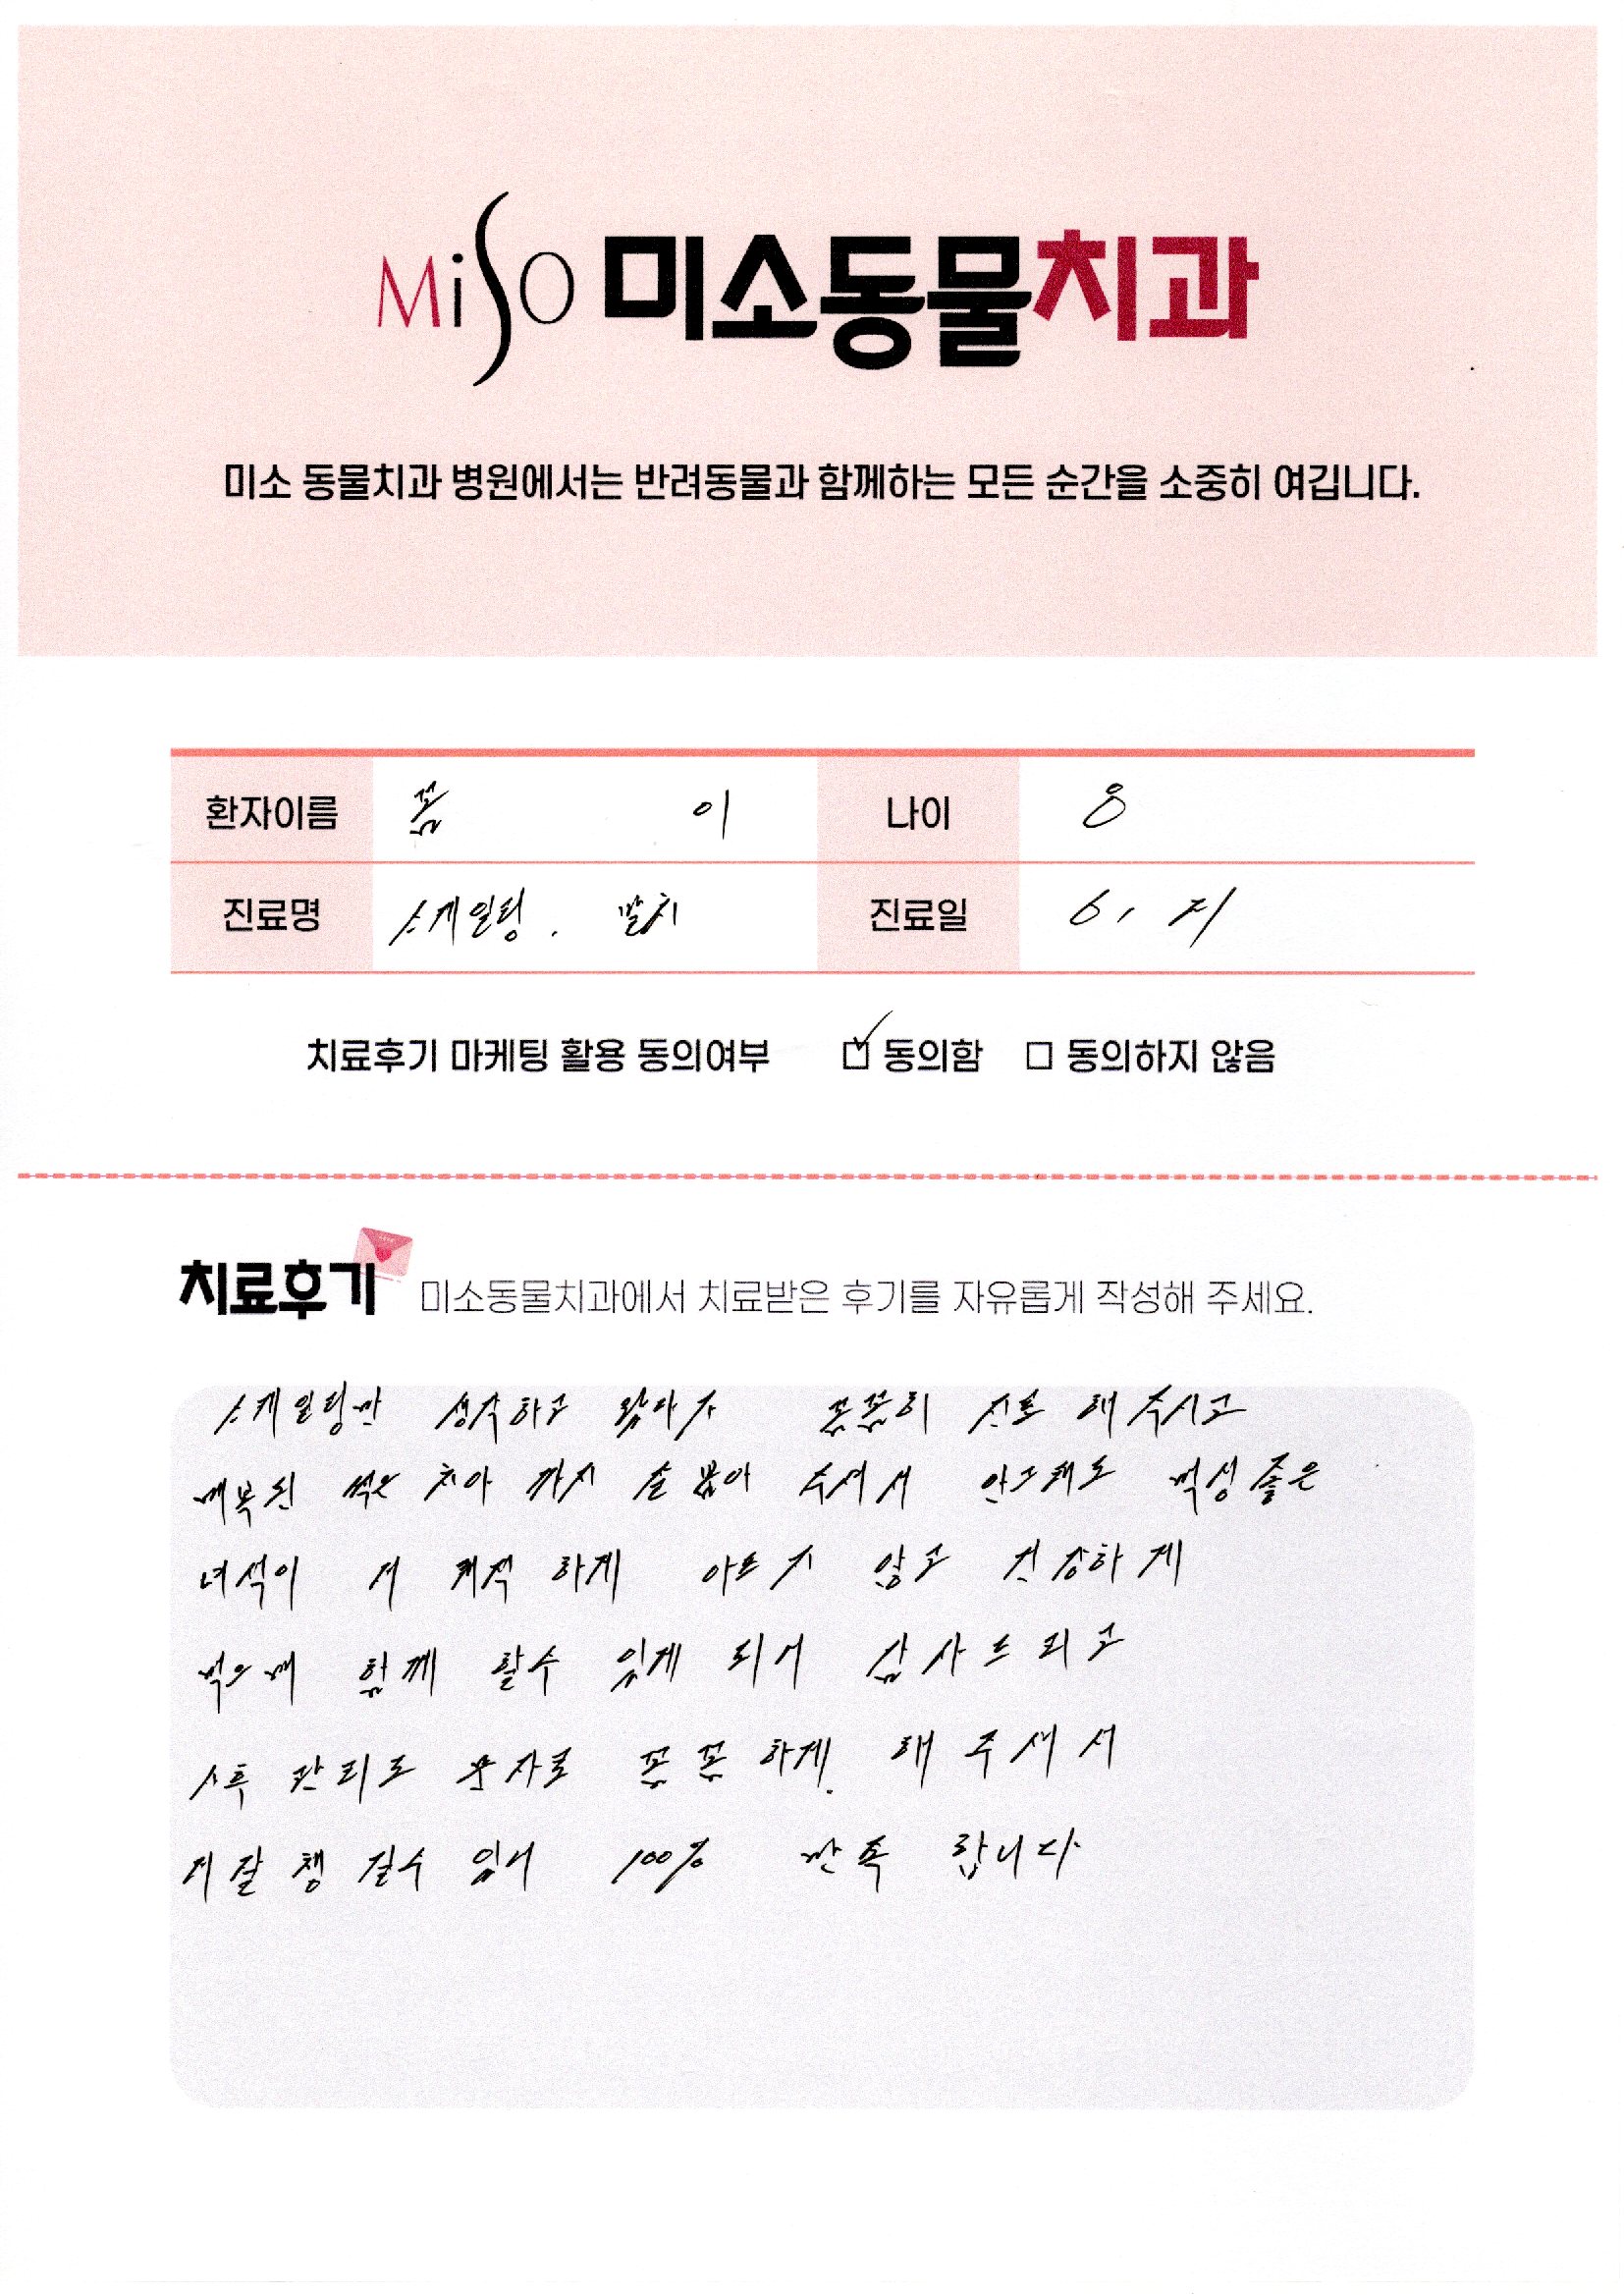 MiSO 미소동물치과
미소 동물치과 병원에서는 반려동물과 함께하는 모든 순간을 소중히 여깁니다.
환자이름 꼼 이 나이 8
진료명 스케일링. 발치 진료일 6, 21
치료후기 마케팅 활용 동의여부 ☑ 동의함 □ 동의하지 않음
치료후기 미소동물치과에서 치료받은 후기를 자유롭게 작성해 주세요.
스케일링만 생각하고 왔다가 꼼꼼히 진료 해 주시고
매복된 썩은 치아 까지 쏙 뽑아 주셔서 안그래도 먹성 좋은
녀석이 더 쾌적 하게 아프지 않고 건강하게
먹으며 함께 할수 있게 되어 감사드리고
사후 관리도 문자로 꼼꼼하게 해 주셔서
더 잘 챙길수 있어 100% 만족 합니다